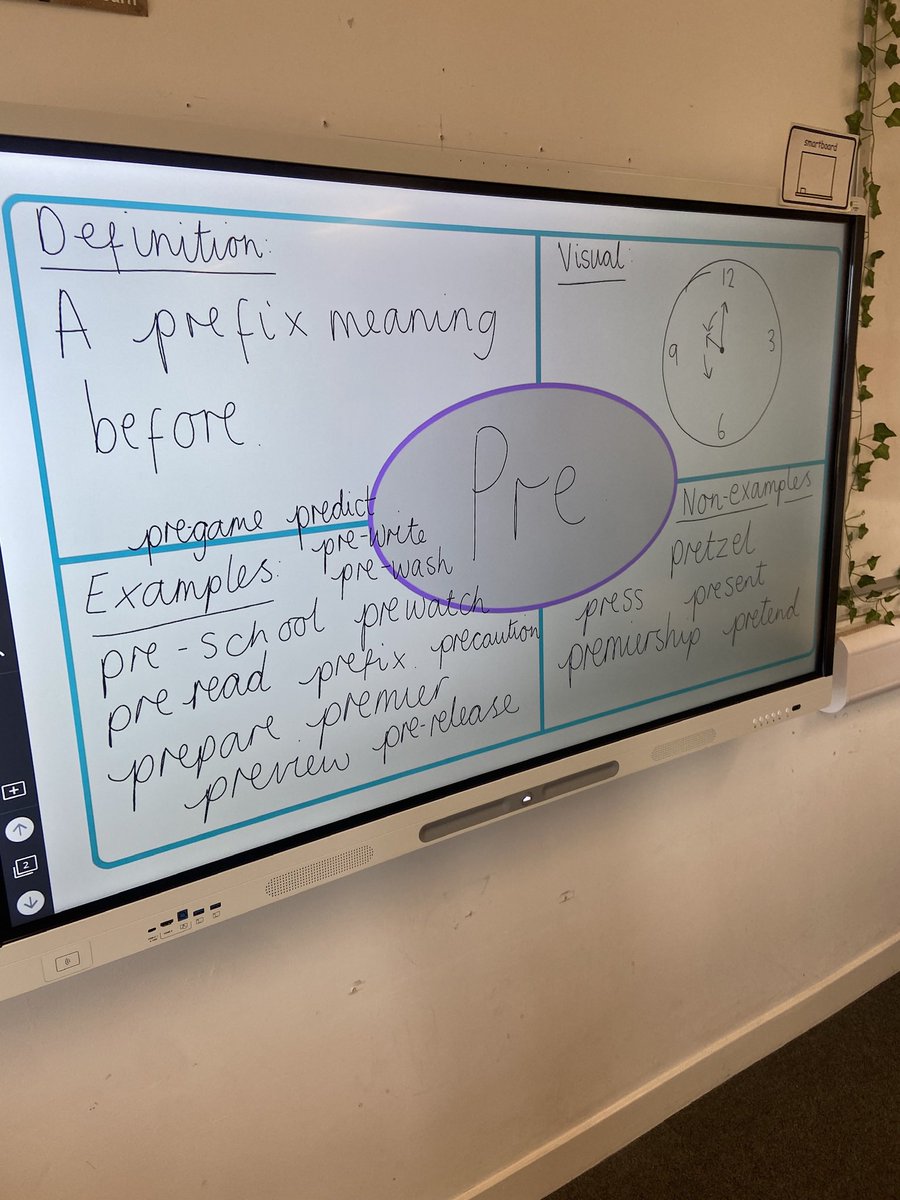 smartboard
Definition:
A prefix meaning
before.
Visual:
12
9
3
6
Pre
pregame predict
pre-write
pre-wash
Examples:
pre-school prewatch
pre read prefix. precaution
prepare premier
preview pre-release
Non-examples
pretzel
press present
premiership pretend
2